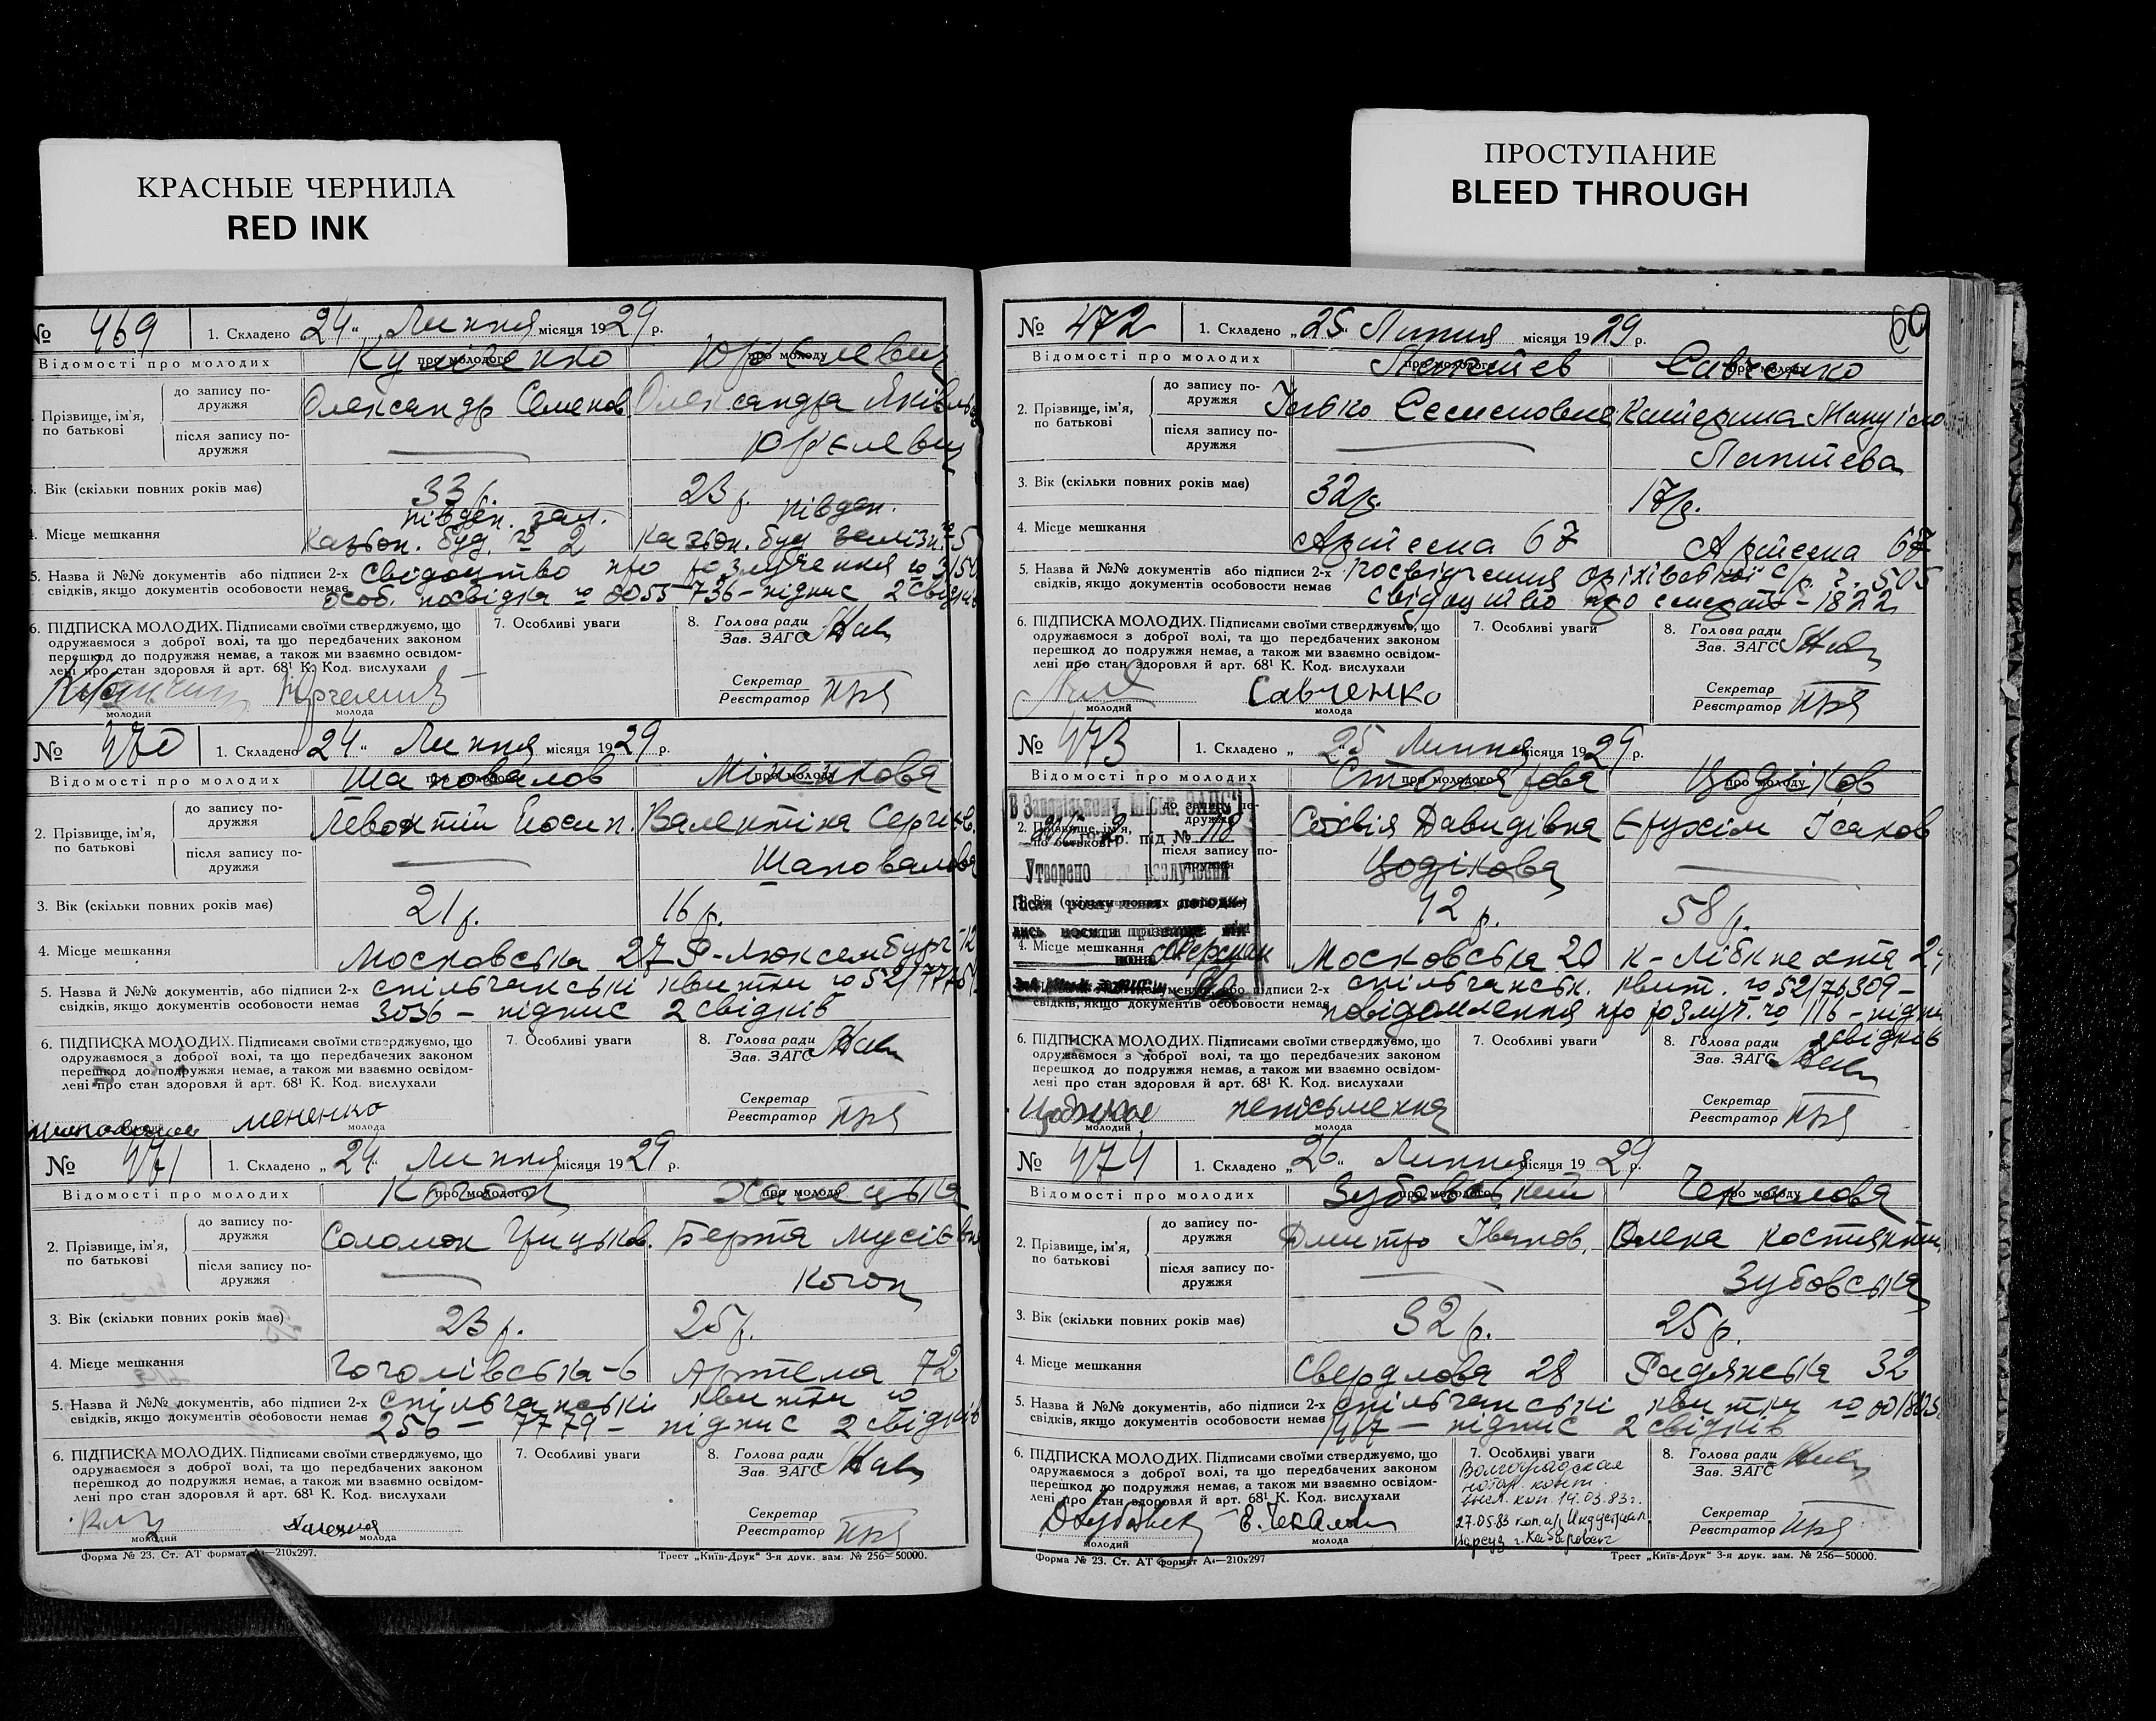 КРАСНЫЕ ЧЕРНИЛА
RED INK
ПРОСТУПАНИЕ
BLEED THROUGH
№ 469 1. Складено 24 " Липня місяця 1929 р.
Відомості про молодих про молодого про молоду
Прізвище, ім'я, по батькові
до запису подружжя Олександр Семенов Олександра Яківль
після запису подружжя —
3. Вік (скільки повних років має) 33 р. 23 р.
4. Місце мешкання півден. зал. півден.
Казьон. буд. № 2 Казьон. буд залізн. № 5
5. Назва й №№ документів або підписи 2-х Свідоцтво про розлучення №
свідків, якщо документів особовости немає особ. посвідка № 0055-736 – підпис 2 свідків
6. ПІДПИСКА МОЛОДИХ. Підписами своїми стверджуємо, що
одружаємося з доброї волі, та що передбачених законом
перешкод до подружжя немає, а також ми взаємно освідом-
лені про стан здоровля й арт. 68¹ К. Код. вислухали
молодий молода
7. Особливі уваги
8. Голова ради
Зав. ЗАГС
Секретар
Реєстратор
№ 470 1. Складено 24 " Липня місяця 1929 р.
Відомості про молодих про молодого про молоду
Шаповалов Мінакова
2. Прізвище, ім'я, по батькові
до запису подружжя Левонтій Йосип. Валентіна Сергієв.
після запису подружжя — Шаповалова
3. Вік (скільки повних років має) 21 р. 16 р.
4. Місце мешкання Московська 27 Р-Люксембург-12
5. Назва й №№ документів, або підписи 2-х спільчанські квитки № 52/777
свідків, якщо документів особовости немає 3036 – підпис 2 свідків
6. ПІДПИСКА МОЛОДИХ. Підписами своїми стверджуємо, що
одружаємося з доброї волі, та що передбачених законом
перешкод до подружжя немає, а також ми взаємно освідом-
лені про стан здоровля й арт. 68¹ К. Код. вислухали
мененко
молода
7. Особливі уваги
8. Голова ради
Зав. ЗАГС
Секретар
Реєстратор
№ 471 1. Складено „ 24 " Липня місяця 1929 р.
Відомості про молодих про молодого про молоду
Когон
2. Прізвище, ім'я, по батькові
до запису подружжя Соломон Грицьков. Берта Мусієвна
після запису подружжя — Когон
3. Вік (скільки повних років має) 23 р. 25 р.
4. Місце мешкання Гоголівська-6 Артема 72
5. Назва й №№ документів, або підписи 2-х спільчанські квитки №
свідків, якщо документів особовости немає 256 – 7779 – підпис 2 свідків
6. ПІДПИСКА МОЛОДИХ. Підписами своїми стверджуємо, що
одружаємося з доброї волі, та що передбачених законом
перешкод до подружжя немає, а також ми взаємно освідом-
лені про стан здоровля й арт. 68¹ К. Код. вислухали
молодий молода
7. Особливі уваги
8. Голова ради
Зав. ЗАГС
Секретар
Реєстратор
Форма № 23. Ст. АТ формат А4—210х297. Трест „Київ-Друк" 3-я друк. зам. № 256—50000.
60
№ 472 1. Складено „ 25 " Липня місяця 1929 р.
Відомості про молодих про молодого про молоду
Савченко
2. Прізвище, ім'я, по батькові
до запису подружжя Ілько Семенович Катерина Мануіло
після запису подружжя — Лаптєва
3. Вік (скільки повних років має) 32 р. 17 р.
4. Місце мешкання Артема 67 Артема 67
5. Назва й №№ документів або підписи 2-х посвідчення оріхівської с/р. 505
свідків, якщо документів особовости немає свідоцтво про смерть – 1822
6. ПІДПИСКА МОЛОДИХ. Підписами своїми стверджуємо, що
одружаємося з доброї волі, та що передбачених законом
перешкод до подружжя немає, а також ми взаємно освідом-
лені про стан здоровля й арт. 68¹ К. Код. вислухали
Савченко
молодий молода
7. Особливі уваги
8. Голова ради
Зав. ЗАГС
Секретар
Реєстратор
№ 473 1. Складено „ 25 Липня місяця 1929 р.
Відомості про молодих про молодого про молоду
Цодіков
2. Прізвище, ім'я, по батькові
до запису подружжя Софія Давидівна Єрухім Ісаков
після запису подружжя Цодікова —
В Запорізькому міськ. ЗАГС'і
р. під № 118
Утворено розлучення
Після розлучення
3. Вік (скільки повних років має) 42 р. 58 р.
4. Місце мешкання Московська 20 К-Лібкнехта 24
5. Назва й №№ документів, або підписи 2-х спільчанськ. квит. № 52/76309 –
свідків, якщо документів особовости немає повідомлення про розлуч. № 116 – підпис
2 свідків
6. ПІДПИСКА МОЛОДИХ. Підписами своїми стверджуємо, що
одружаємося з доброї волі, та що передбачених законом
перешкод до подружжя немає, а також ми взаємно освідом-
лені про стан здоровля й арт. 68¹ К. Код. вислухали
неписьменна
молодий молода
7. Особливі уваги
8. Голова ради
Зав. ЗАГС
Секретар
Реєстратор
№ 474 1. Складено „ 26 " Липня місяця 1929 р.
Відомості про молодих про молодого про молоду
Зубовський Чекалова
2. Прізвище, ім'я, по батькові
до запису подружжя Дмитро Іванов. Олена Костянтин.
після запису подружжя — Зубовська
3. Вік (скільки повних років має) 32 р. 25 р.
4. Місце мешкання Свердлова 28 Радянська 32
5. Назва й №№ документів, або підписи 2-х спільчанські квитки №
свідків, якщо документів особовости немає – підпис 2 свідків
6. ПІДПИСКА МОЛОДИХ. Підписами своїми стверджуємо, що
одружаємося з доброї волі, та що передбачених законом
перешкод до подружжя немає, а також ми взаємно освідом-
лені про стан здоровля й арт. 68¹ К. Код. вислухали
Е. Чекалова
молодий молода
7. Особливі уваги
Волгоградская
нотар. конт.
высл. коп. 14.03.83 г.
27.05.83 коп. а/з Индустриал.
8. Голова ради
Зав. ЗАГС
Секретар
Реєстратор
Форма № 23. Ст. АТ формат А4—210х297 Трест „Київ-Друк" 3-я друк. зам. № 256—50000.